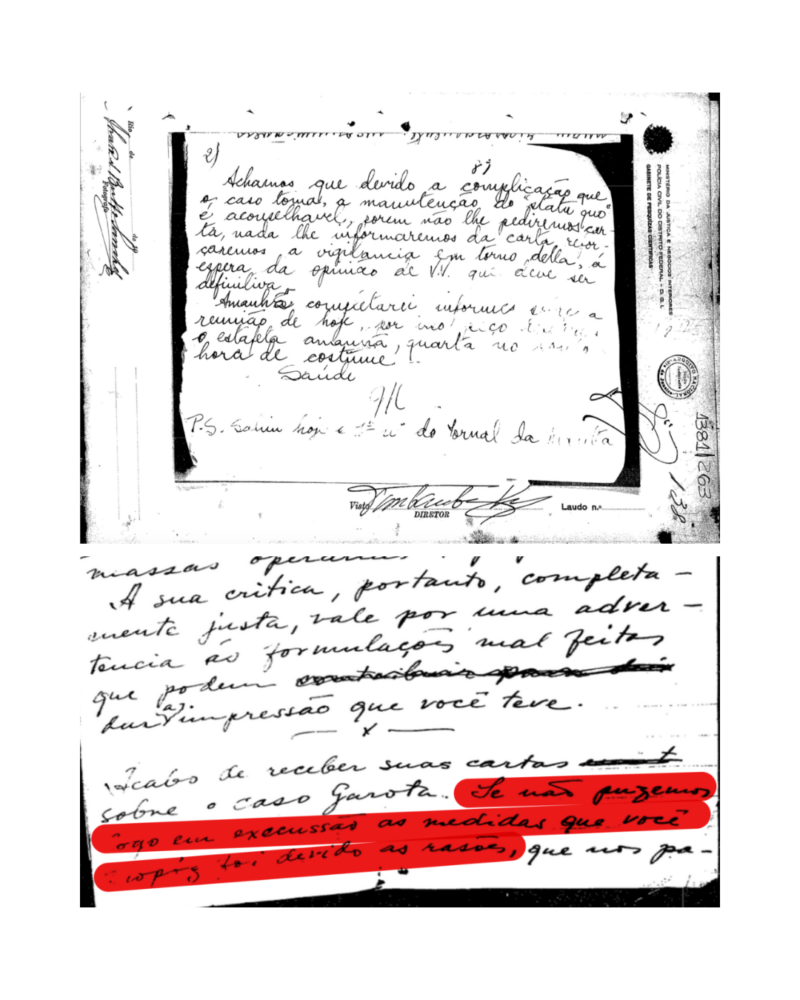 2)
Achamos que devido a complicação que
o caso toma, a manutenção do "statu quo"
é aconselhavel, porem não lhe pediremos car-
ta, nada lhe informaremos da carta, refor-
çaremos a vigilancia em torno della, á
espera da opinião de V.V. que deve ser
definitiva.
Amanhã completarei informes a
reunião de hoje, por isso peço
o estafeta amanhã, quarta no
hora de costume.
Saúde
M
P.S. Sahiu hoje o 1º nº do Jornal da
Visto
DIRETOR
Laudo n.º
MINISTERIO DA JUSTIÇA E NEGOCIOS INTERIORES
POLICIA CIVIL DO DISTRITO FEDERAL - D. G. I.
GABINETE DE PESQUISAS CIENTIFICAS
1381/263
138
Rio de
de 19
massas
A sua critica, portanto, completa-
mente justa, vale por uma adver-
tencia ás formulações mal feitas
que podem contribuir para
dar a impressão que você teve.
x
Acabo de receber suas cartas
sobre o caso Garota. Se não puzemos
logo em excussão as medidas que você
propôz foi devido as rasões, que nos pa-